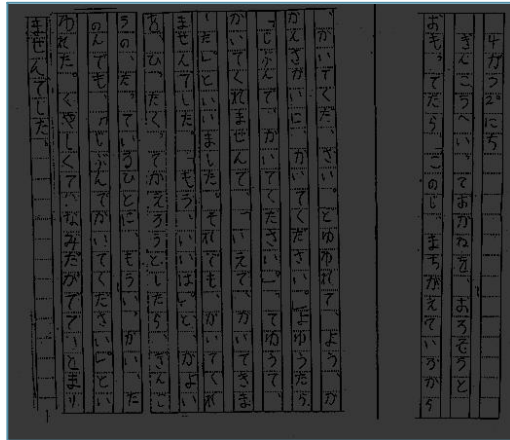 4がつ2にち
ぎんこうへいっておかねを、おろそうと
おもってたら、このじ、まちがえているから
、かいてください。とゆわれて、よう、か
かんさがいに、かいてください。」とゆうたら
「じぶんで、かいてください。」って、ゆうて、
かいてくれませんで、「いえで、かいてきま
した」といいました。それでも、かいてくれ
ませんでした。「もう、いいは」と、かよい
ね、ひったくってかえろうとしたら、ぎんこ
うの、たっているひとに、もういっかい、た
のんでも、「じぶんでかいてください」とい
われた。くやしくてへなみだがでて、とまり
ませんでした。